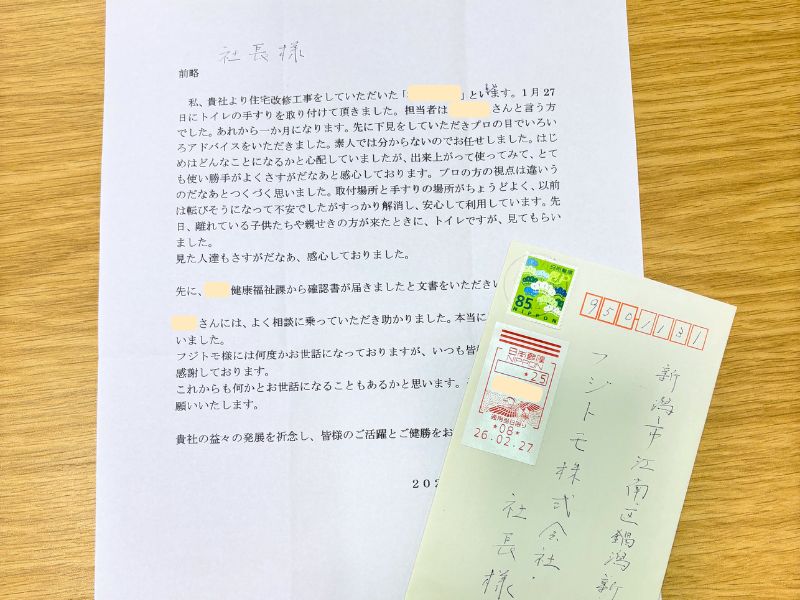 社長様
前略
私、貴社より住宅改修工事をしていただいた「 」といいます。1月27
日にトイレの手すりを取り付けて頂きました。担当者は さんと言う方
でした。あれから一か月になります。先に下見をしていただきプロの目でいろい
ろアドバイスをいただきました。素人では分からないのでお任せしました。はじ
めはどんなことになるかと心配していましたが、出来上がって使ってみて、とて
も使い勝手がよくさすがだなあと感心しております。プロの方の視点は違いう
のだなあとつくづく思いました。取付場所と手すりの場所がちょうどよく、以前
は転びそうになって不安でしたがすっかり解消し、安心して利用しています。先
日、離れている子供たちや親せきの方が来たときに、トイレですが、見てもらい
ました。
見た人達もさすがだなあ、感心しておりました。
先に、 健康福祉課から確認書が届きましたと文書をいただきい
さんには、よく相談に乗っていただき助かりました。本当に
いました。
フジトモ様には何度かお世話になっておりますが、いつも皆
感謝しております。
これからも何かとお世話になることもあるかと思います。
願いいたします。
貴社の益々の発展を祈念し、皆様のご活躍とご健勝をお
202
日本郵便
85
NIPPON
日本郵便
NIPPON
*25
*08*
26.02.27
9501131
新潟市江南区鍋潟新
フジトモ株式会社
社長様